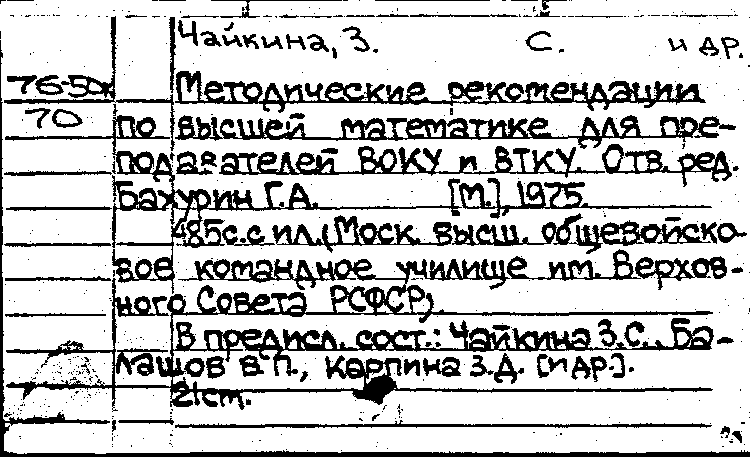 Чайкина, З. С. и др.
76-50к Методические рекомендации
70 по высшей математике для пре-
подавателей ВОКУ и ВТКУ. Отв. ред.
Бахурин Г.А. [М.], 1975.
485с.с ил.(Моск. высш. общевойско-
вое командное училище им. Верхов-
ного Совета РСФСР).
В предисл. сост.: Чайкина З.С., Ба-
лашов В.П., Карпина З.Д. [и др.].
21см.